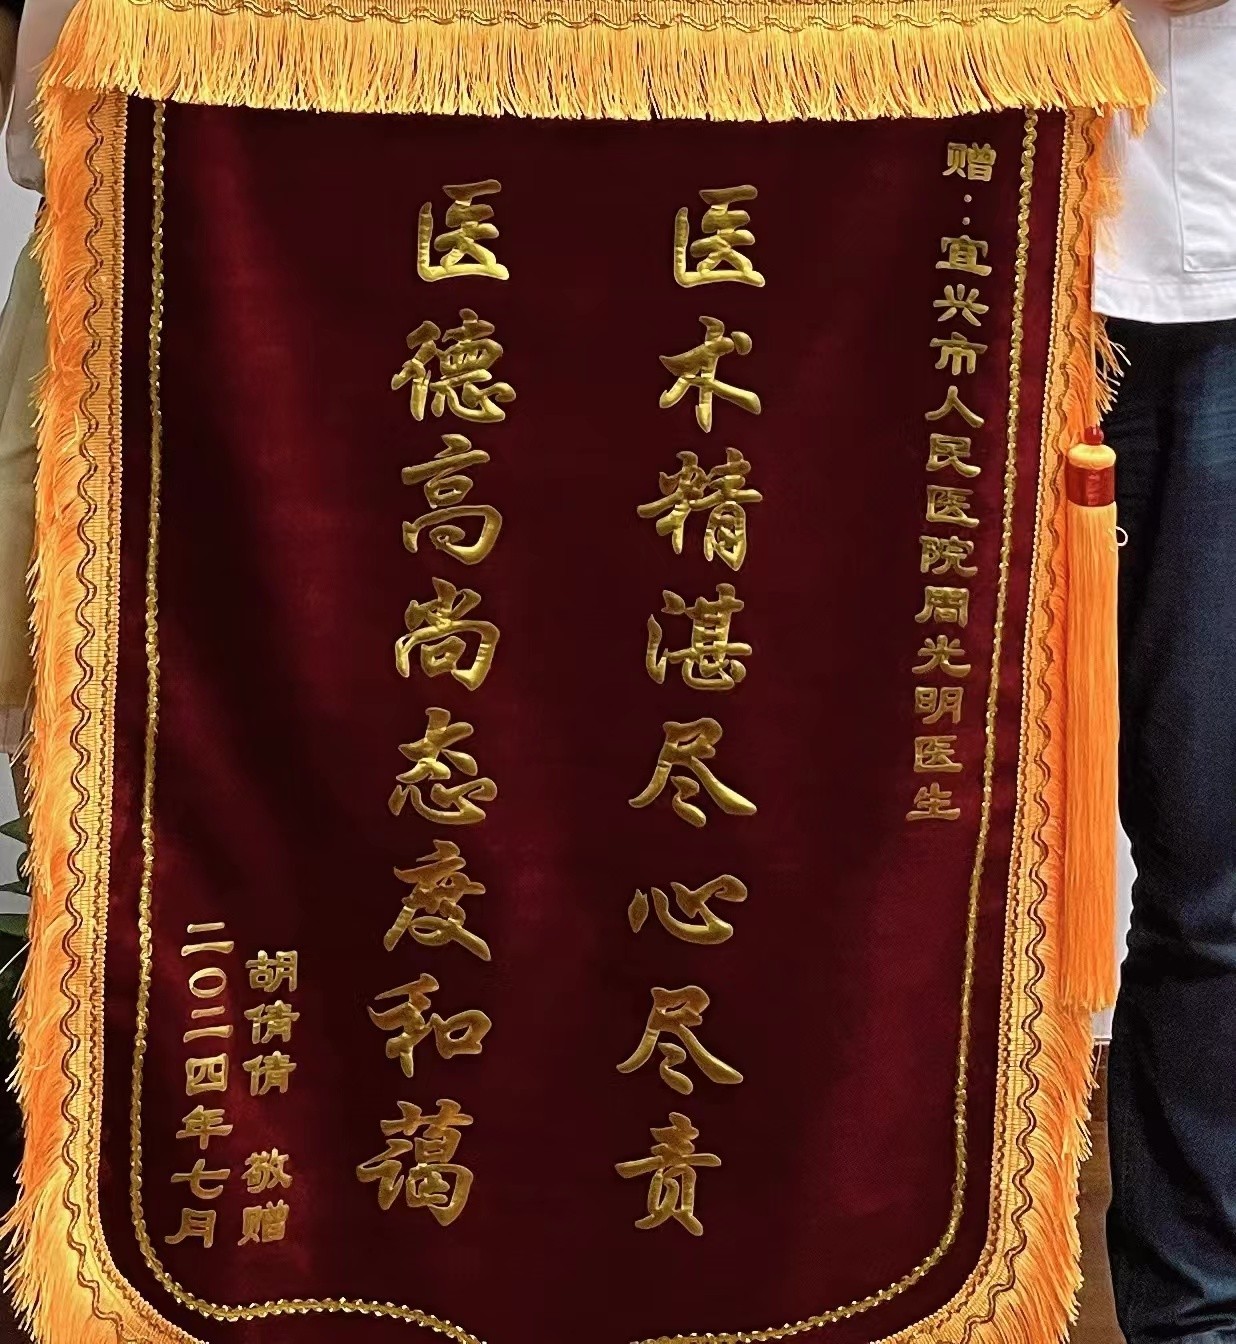 赠：宜兴市人民医院周光明医生
医术精湛尽心尽责
医德高尚态度和蔼
胡倩倩 敬赠
二〇二四年七月